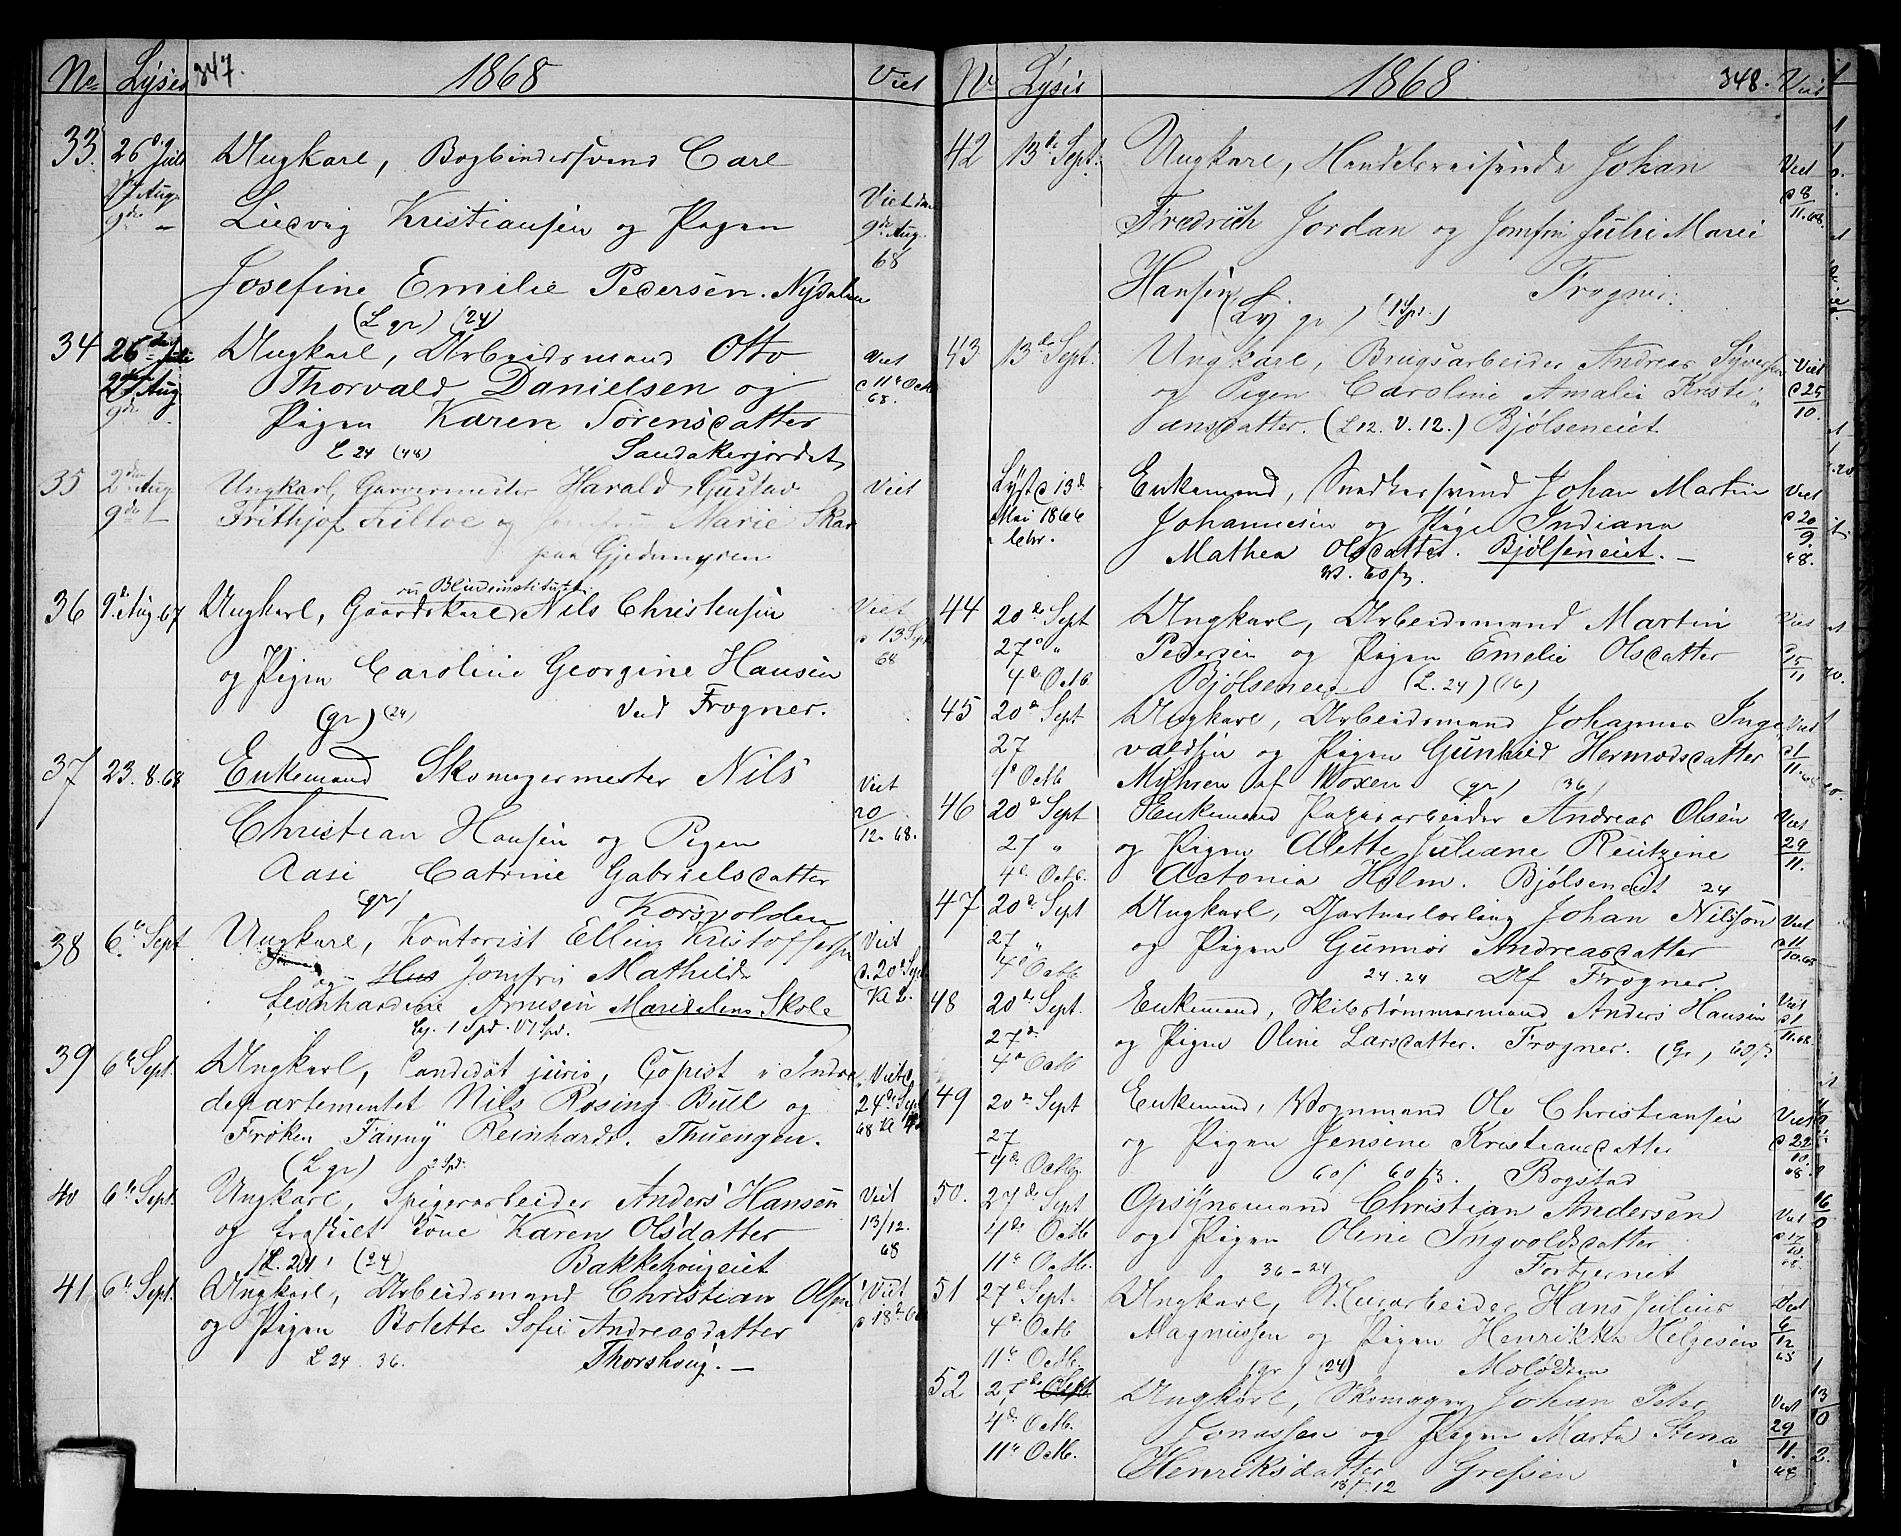 No Lysis 347. 1868 Viet
33. 26de Juli Ungkarl, Bogbindersvend Carl
Aug.
9de — Ludvig Kristiansen og Pigen Viet den 9de Aug. 68
Josefine Emilie Pedersen. Nydalen
(L gr) (24)
34 26de Juli Ungkarl, Arbeidsmand Otto Viet
2den Aug Thorvald Danielsen og d 11te Octb 68.
9de Pigen Karen Sørensdatter
L 24 (48) Sandakerjordet
35 2den Aug Ungkarl, Garvermester Harald Gustav Viet
9de — Frithjof og Jomfru Marie
paa Gjedemyren
i Blindeinstitutet
36 9de Aug 67 Ungkarl, Gaardskarl Nils Christensen Viet
d 13 Sept 68
og Pigen Caroline Georgine Hansen
(gr) (24) ved Frogner.
37 23.8.68 Enkemand Skomagermester Nils Viet
20/12.68.
Christian Hansen og Pigen
Aase Catrine Gabrielsdatter
(gr) Korsvolden
38 6te Sept Ungkarl, Kontorist Elling Kristoffersen Viet
og Jomfru Mathilde d. 20de Sept
Leonhardine Arnesen Maridalens Skole Kl 2.
Ly. 1 Spd. V 1 Spd.
39 6te Sept. Ungkarl, Candidat juris, Copist i Indre Viet d
departementet Nils Rosing Bull og 24de Sept
Frøken Fanny Reinhardt. Thuengen. 68 Kl
(L gr) 2 Spd.
40 6te Sept. Ungkarl, Spigerarbeider Anders Hansen Viet
og fraskilt Kone Karen Olsdatter 13/12.
(L. 24) (24) Bakkehougeiet 68
41 6te Sept. Ungkarl, Arbeidsmand Christian Olsen Viet
og Pigen Bolette Sofie Andreasdatter d 18de Oct
L 24. 36. Thorshoug. —
No Lysis 1868 348. Viet
42 13de Sept. Ungkarl, Handelsreisende Johan Viet
d 8/11.68.
Fredrich Jordan og Jomfru Julie Marie
Hansen Frogner.
(Ly gr) (1 Spd.)
43 13de Sept. Ungkarl, Brugsarbeider Andreas Syversen Viet
og Pigen Caroline Amalie Kristi- d 25/10.
ansdatter. (L 12. V. 12.) Bjølseneiet
Lyst d 13de Enkemand, Snedkersvend Johan Martin Viet
Mai 1866 Johannesen og Pigen Indiana d 20/9.
Mathea Olsdatter. Bjølseneiet. — 68.
V. 60 ß
44 20de Sept Ungkarl, Arbeidsmand Martin Viet
27 " Pedersen og Pigen Emelie Olsdatter d 15/11
4de Octb. Bjølseneie (L. 24) (16)
45 20de Sept Ungkarl, Arbeidsmand Johannes Inge Viet
27 valdsen og Pigen Gunhild Hermodsdatter d 1/11.68
4de Octb Myhren af Voxen (gr) 36)
46 20de Sept Enkemand Papirarbeider Andreas Olsen Viet
27 " og Pigen Alette Juliane Reutzine 29/11.
4de Octb. Actonia Holm. Bjølseneiet 24
47 20de Sept Ungkarl, Gartnerlærling Johan Nilsson Viet
27 " og Pigen Gunnor Andreasdatter d 11/10.68
4de Octb. 24. 24 Af Frogner.
48 20de Sept. Enkemand, Skibstømmermand Anders Hansen Viet
27de og Pigen Oline Larsdatter. Frogner. (Gr, 60 ß d 1/11.68
4de Octb
49 20de Sept Enkemand, Vognmand Ole Christiansen Viet
27 og Pigen Jensine Kristiansdatter d 22/10.
4de Octb. 60 / 60 ß. Bogstad 68.
50. 27de Sept Opsynsmand Christian Andersen Viet
4de Octb og Pigen Oline Ingvoldsdatter d 17/10.
11te Octb. 36 - 24 Fortjernet
51 27de Sept. Ungkarl, Murarbeider Hans Julius Viet
4de Octb Magnussen og Pigen Henrikke Helgesen 6/12
11te Octb. (gr) (24) 68
52 27de Ungkarl, Skomager Johan Peter Viet
4de Octb. Jonassen og Pigen Marta Stina 29/11.
11te Octb. Henriksdatter Grefsen 68
12